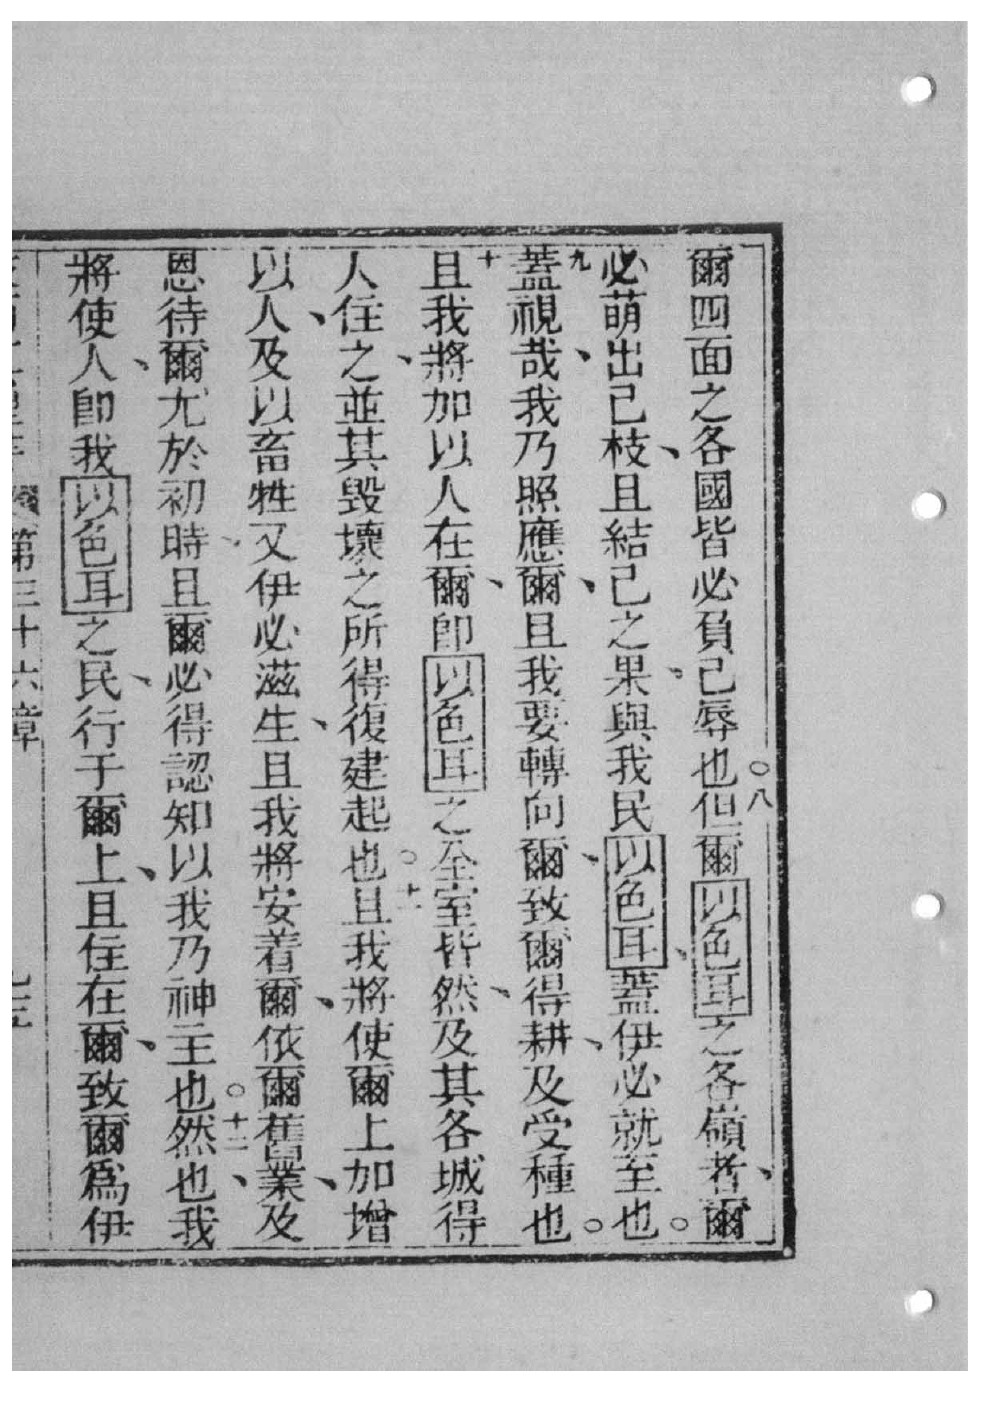 爾四面之各國皆必負己辱也○八但爾以色耳之各嶺者、爾
必萌出己枝、且結己之果、與我民以色耳、蓋伊必就至也○
九蓋視哉、我乃照應爾、且我要轉向爾、致爾得耕、及受種也○
十且我將加以人在爾、即以色耳之全室皆然、及其各城得
人住之、並其毀壞之所得復建起也○十一且我將使爾上加增
以人、及以畜牲、又伊必滋生、且我將安着爾、依爾舊業、及
恩待爾尤於初時、且爾必得認知以我乃神主也○十二然也、我
將使人、即我以色耳之民、行于爾上、且住在爾、致爾爲伊
第三十六章